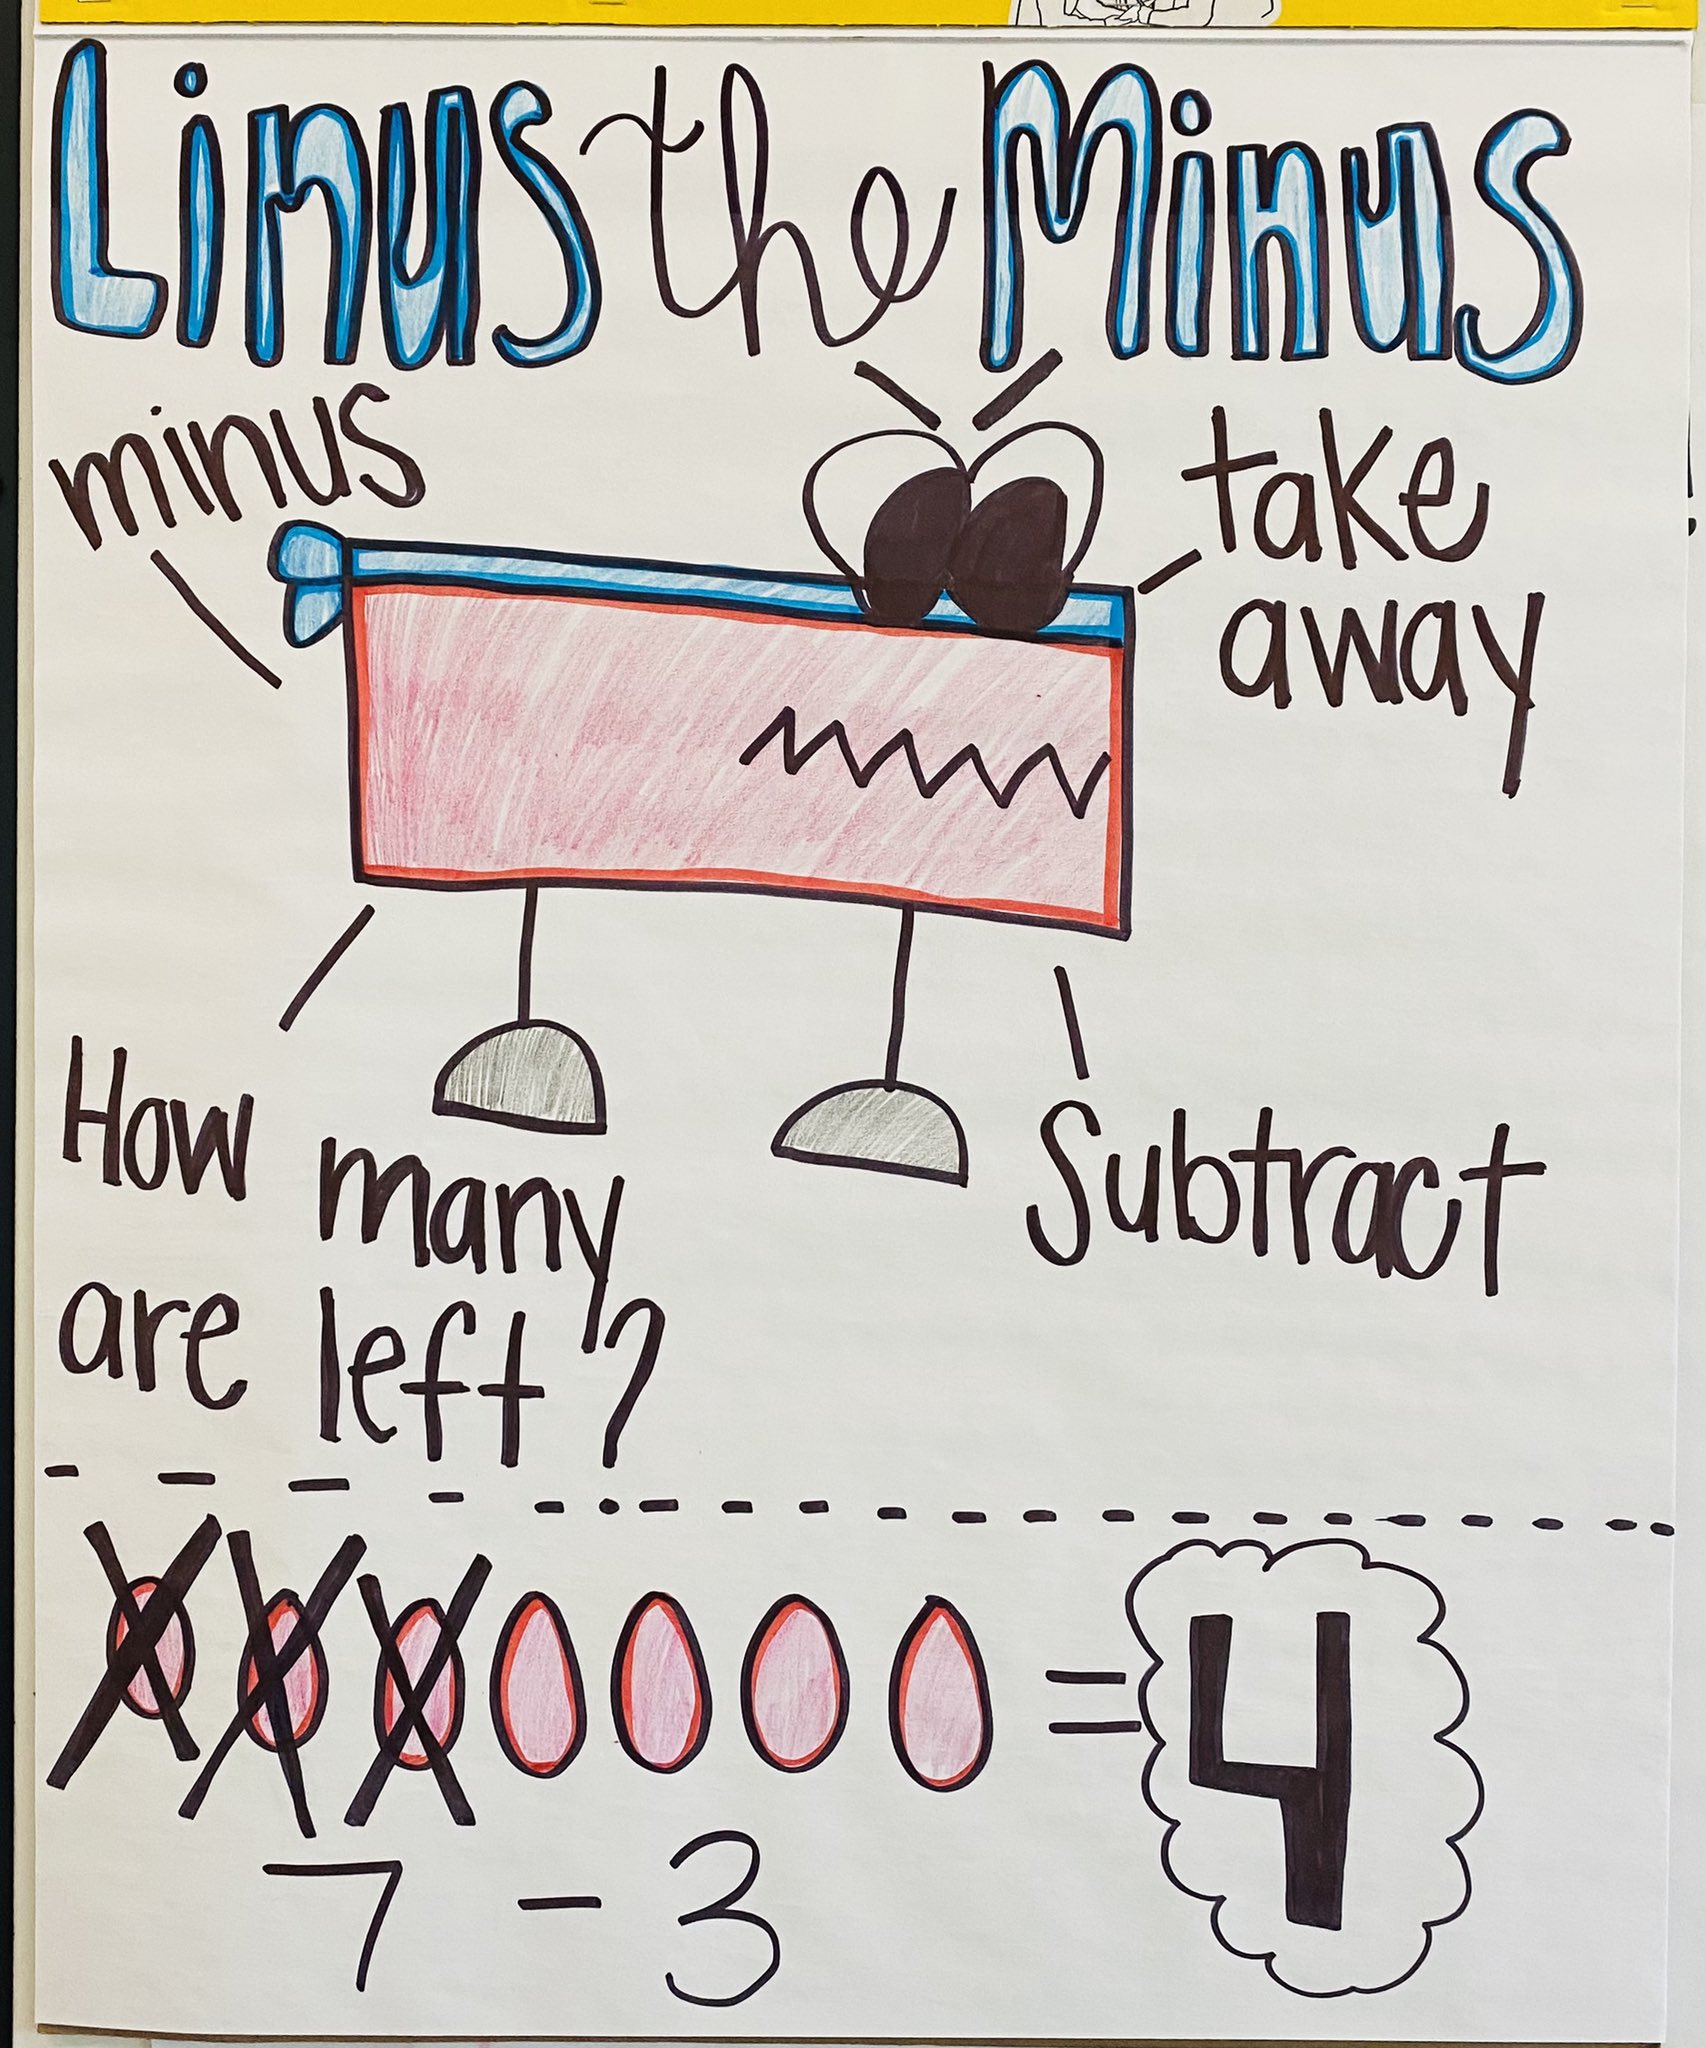 Linus the Minus
minus
take
away
How many
are left?
Subtract
= 4
7 - 3